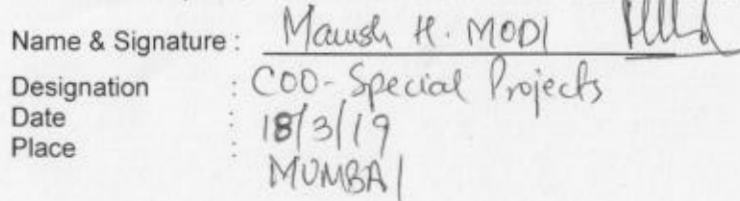 Name & Signature : Manish H. MODI
Designation : COO- Special Projects
Date : 18/3/19
Place : MUMBAI